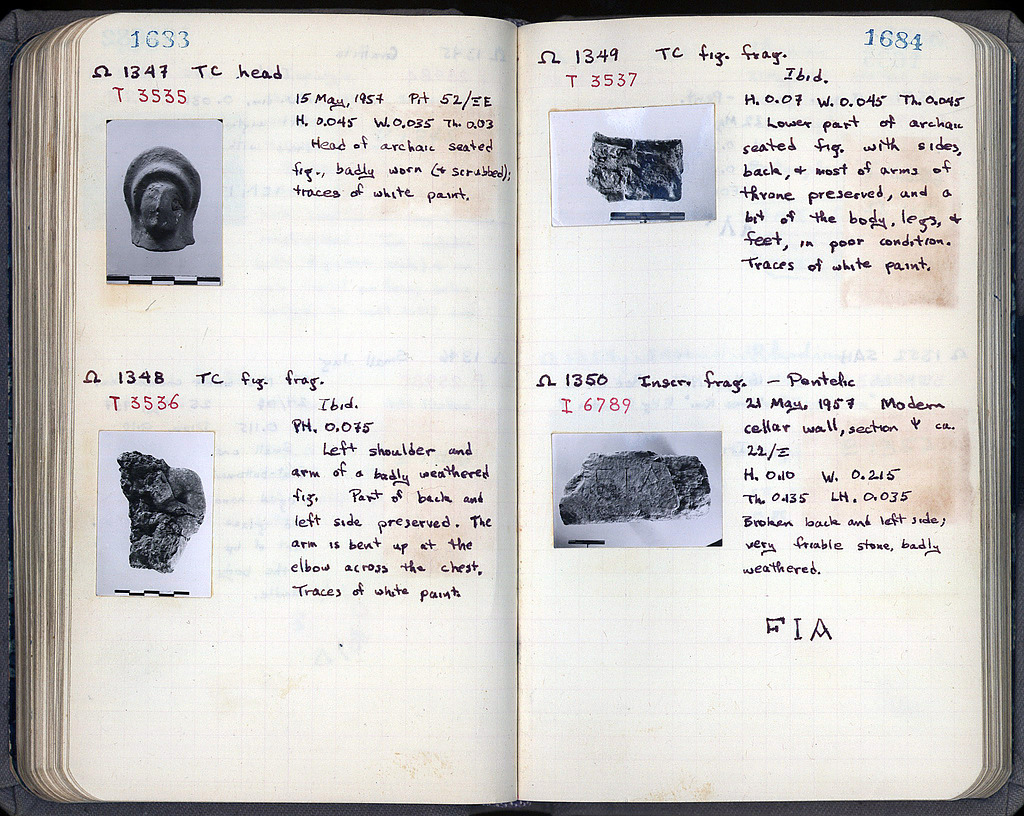 1683
Ω 1347 TC head
T 3535
15 May, 1957 Pit 52/ΞE
H. 0.045 W. 0.035 Th. 0.03
Head of archaic seated
fig., badly worn (+ scrubbed);
traces of white paint.
Ω 1348 TC fig. frag.
T 3536
Ibid.
PH. 0.075
Left shoulder and
arm of a badly weathered
fig. Part of back and
left side preserved. The
arm is bent up at the
elbow across the chest.
Traces of white paint
1684
Ω 1349 TC fig. frag.
T 3537
Ibid.
H. 0.07 W. 0.045 Th. 0.045
Lower part of archaic
seated fig. with sides,
back, + most of arms of
throne preserved, and a
bit of the body, legs, +
feet, in poor condition.
Traces of white paint.
Ω 1350 Inscr. frag. – Pentelic
I 6789
21 May, 1957 Modern
cellar wall, section Ψ ca.
22/Ξ
H. 0.10 W. 0.215
Th. 0.135 LH. 0.035
Broken back and left side;
very friable stone, badly
weathered.
FIA